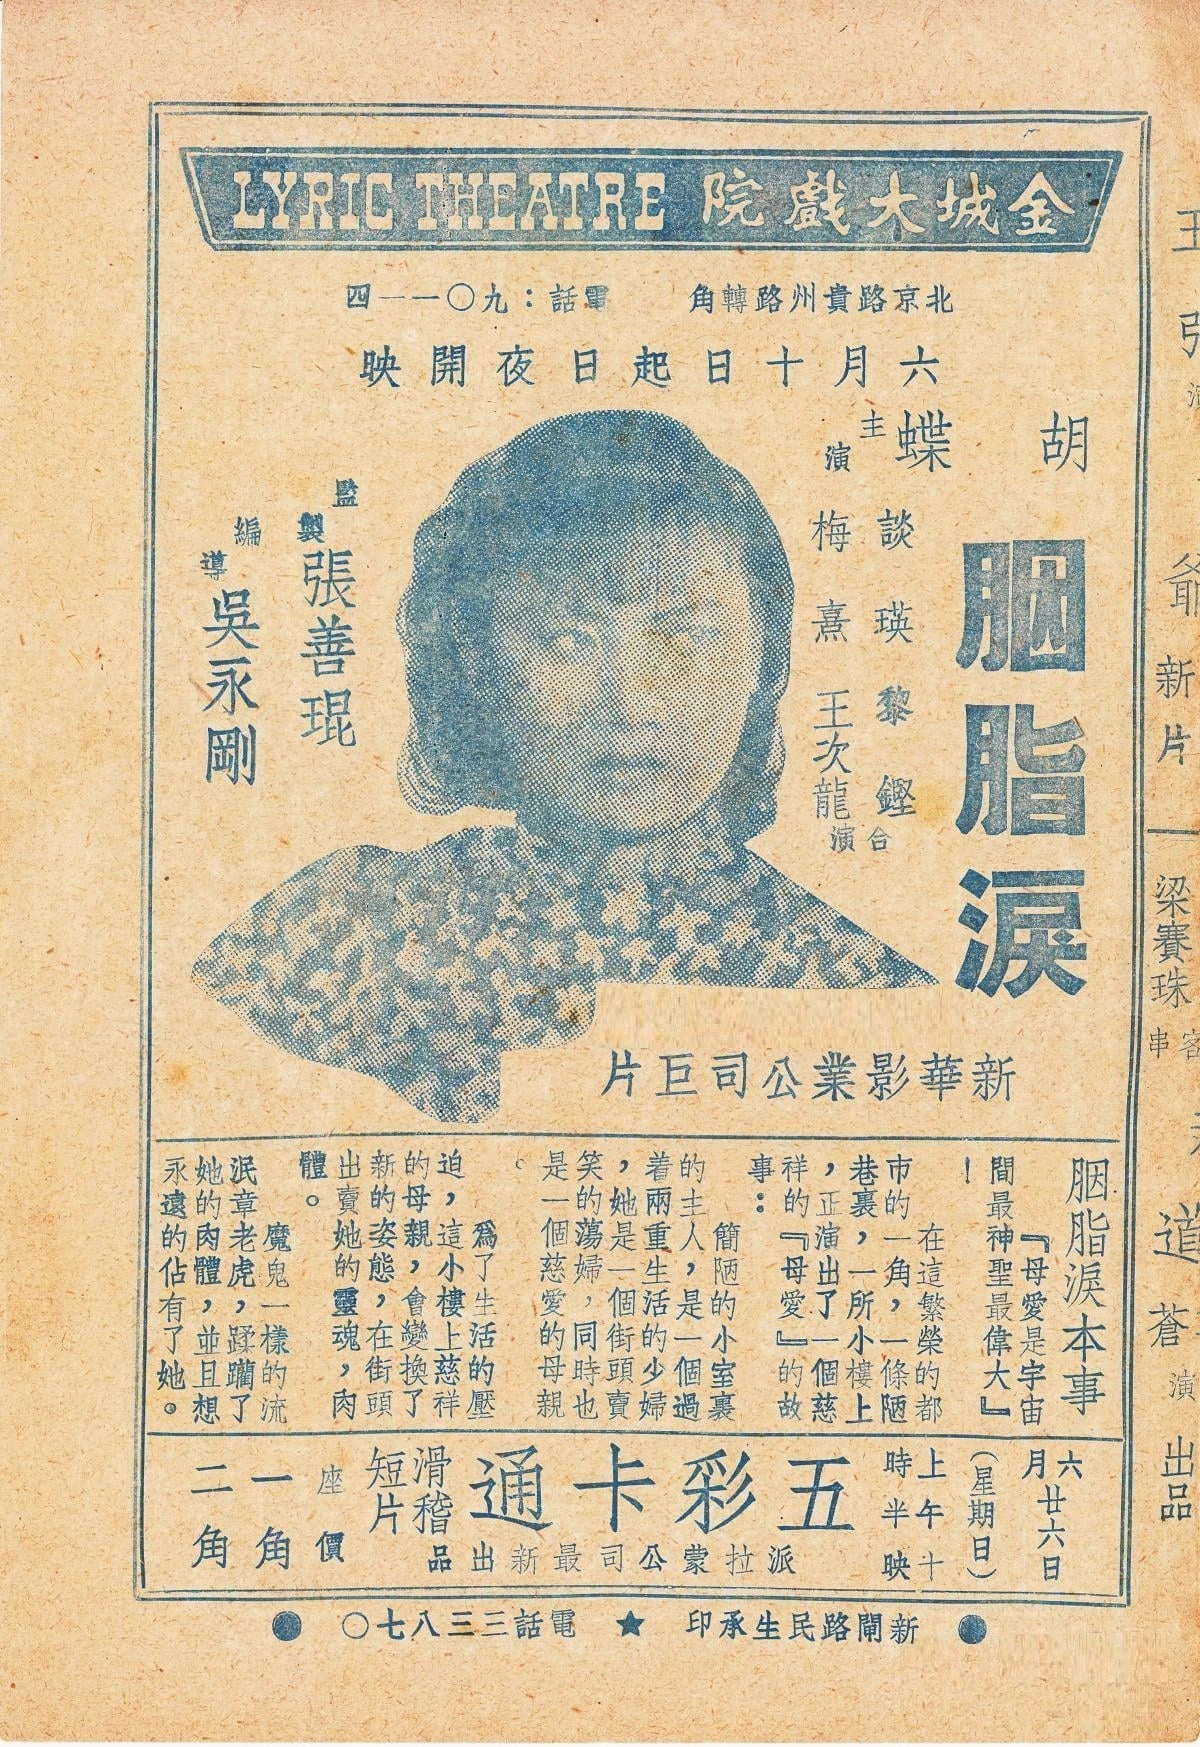 金城大戲院 LYRIC THEATRE
北京路貴州路轉角 電話：九〇一一四
六月十日起日夜開映
胡蝶主演
胭脂淚
談瑛 黎鏗
梅熹 王次龍
合演
監製 張善琨
編導 吳永剛
新華影業公司巨片
胭脂淚本事
『母愛是宇宙
間最神聖最偉大』
！
在這繁榮的都
市的一角，一條陋
巷裏，一所小樓上
，正演出了一個慈
祥的『母愛』的故
事：
簡陋的小室裏
的主人，是一個過
着兩重生活的少婦
，她是一個街頭賣
笑的蕩婦，同時也
是一個慈愛的母親
。
爲了生活的壓
迫，這小樓上慈祥
的母親，會變換了
新的姿態，在街頭
出賣她的靈魂，肉
體。
魔鬼一樣的流
氓章老虎，蹂躪了
她的肉體，並且想
永遠的佔有了她。
六月廿六日
（星期日）
上午十
時半映
五彩卡通
滑稽
短片
派拉蒙公司最新出品
座價
一角
二角
●新閘路民生承印 ★ 電話三三八七〇●
新片
梁賽珠
客串
道
蒼
演
出品